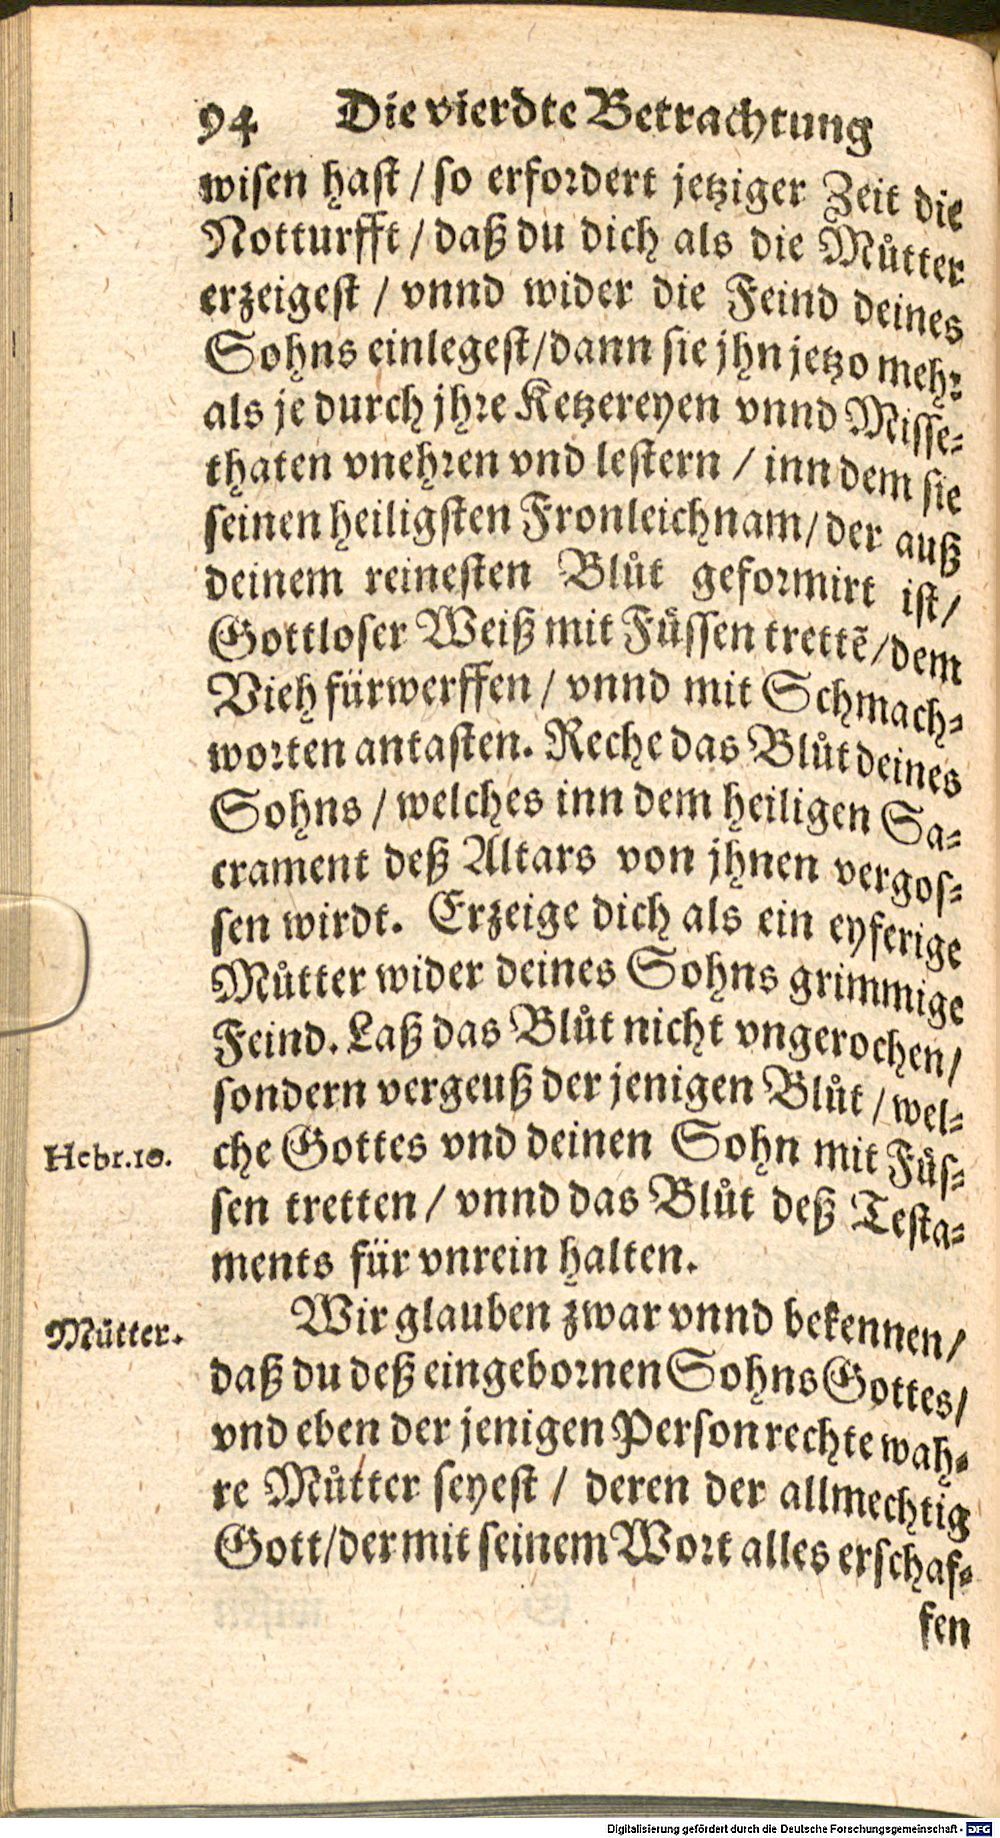 94 Die vierdte Betrachtung
wisen hast / so erfordert jetziger Zeit die
Notturfft / daß du dich als die Můtter
erzeigest / vnnd wider die Feind deines
Sohns einlegest/dann sie jhn jetzo mehr
als je durch jhre Ketzereyen vnnd Misse-
thaten vnehren vnd lestern / inn dem sie
seinen heiligsten Fronleichnam/der auß
deinem reinesten Blůt geformirt ist/
Gottloser Weiß mit Fůssen trettẽ/dem
Vieh fürwerffen / vnnd mit Schmach-
worten antasten. Reche das Blůt deines
Sohns / welches inn dem heiligen Sa-
crament deß Altars von jhnen vergos-
sen wirdt. Erzeige dich als ein eyferige
Můtter wider deines Sohns grimmige
Feind. Laß das Blůt nicht vngerochen/
sondern vergeuß der jenigen Blůt / wel-
Hebr.10. che Gottes vnd deinen Sohn mit Fůs-
sen tretten / vnnd das Blůt deß Testa-
ments für vnrein halten.
Můtter. Wir glauben zwar vnnd bekennen/
daß du deß eingebornen Sohns Gottes/
vnd eben der jenigen Person rechte wah-
re Můtter seyest / deren der allmechtig
Gott/der mit seinem Wort alles erschaf-
fen
Digitalisierung gefördert durch die Deutsche Forschungsgemeinschaft - DFG